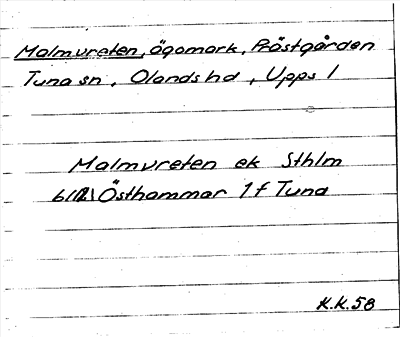 Malmvreten, ägomark, Prästgården
Tuna sn, Olands hd, Upps l
Malmvreten ek Sthlm
bl Östhammar 1f Tuna
K.K.58